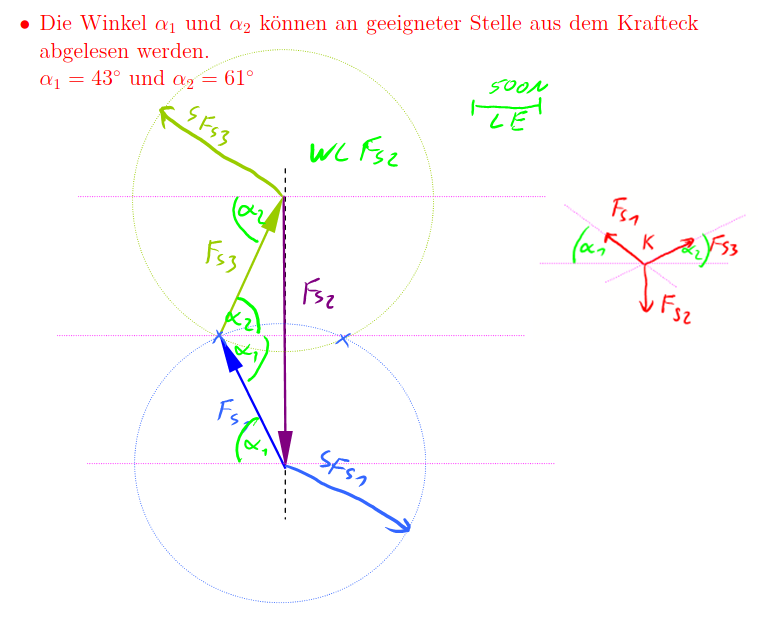 • Die Winkel α₁ und α₂ können an geeigneter Stelle aus dem Krafteck
abgelesen werden.
α₁ = 43° und α₂ = 61°
500N
LE
SFS3
WL FS2
α₂
FS3
FS2
α₂
α₁
FS1
α₁
SFS1
FS1
α₁
K
α₂
FS3
FS2